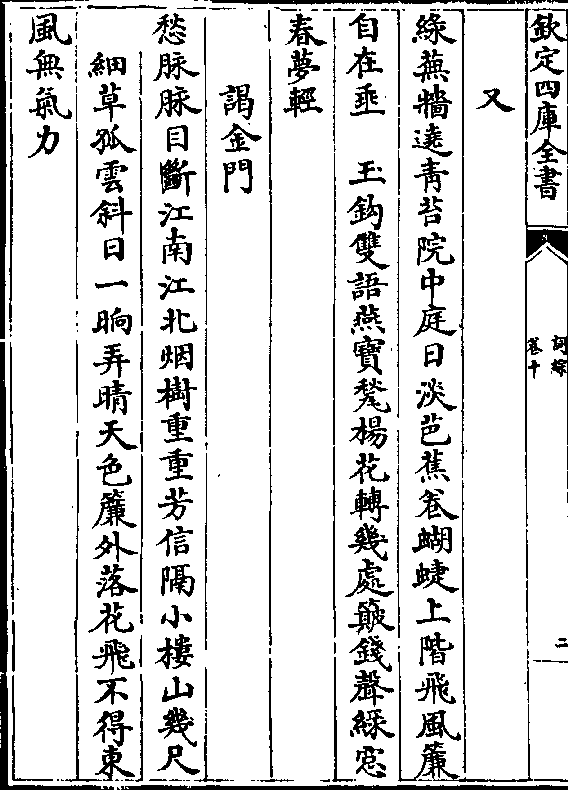 欽定四庫全書
詞綜
卷十
二
又
緑蕪牆遶青苔院中庭日淡芭蕉卷蝴蜨上階飛風簾
自在垂　玉鈎雙語燕寶甃楊花轉幾處簸錢聲緑窓
春夢輕
謁金門
愁脉脉目斷江南江北烟樹重重芳信隔小樓山幾尺
細草孤雲斜日一晌弄晴天色簾外落花飛不得東
風無氣力